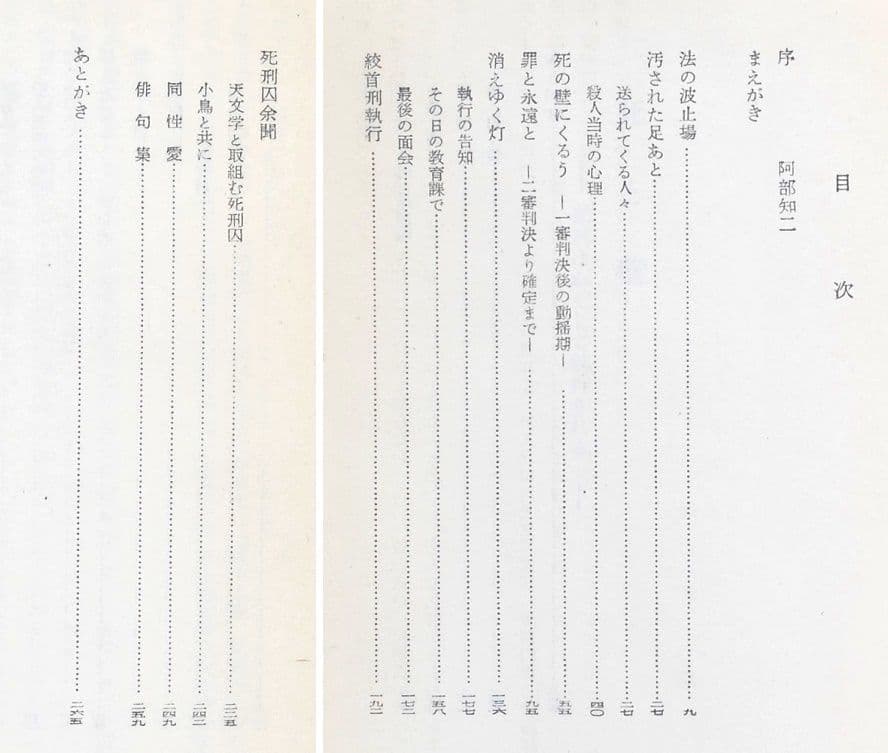 目次
序　阿部知二
まえがき
法の波止場 九
汚された足あと 二七
送られてくる人々 二七
殺人当時の心理 四〇
死の壁にくるう ―一審判決後の動揺期― 五五
罪と永遠と ―二審判決より確定まで― 九五
消えゆく灯 一三六
執行の告知
その日の教育課で 一五八
最後の面会 一七二
絞首刑執行 一九二
死刑囚余聞
天文学と取組む死刑囚 二二五
小鳥と共に 二四二
同性愛 二四九
俳句集 二五九
あとがき 二六五